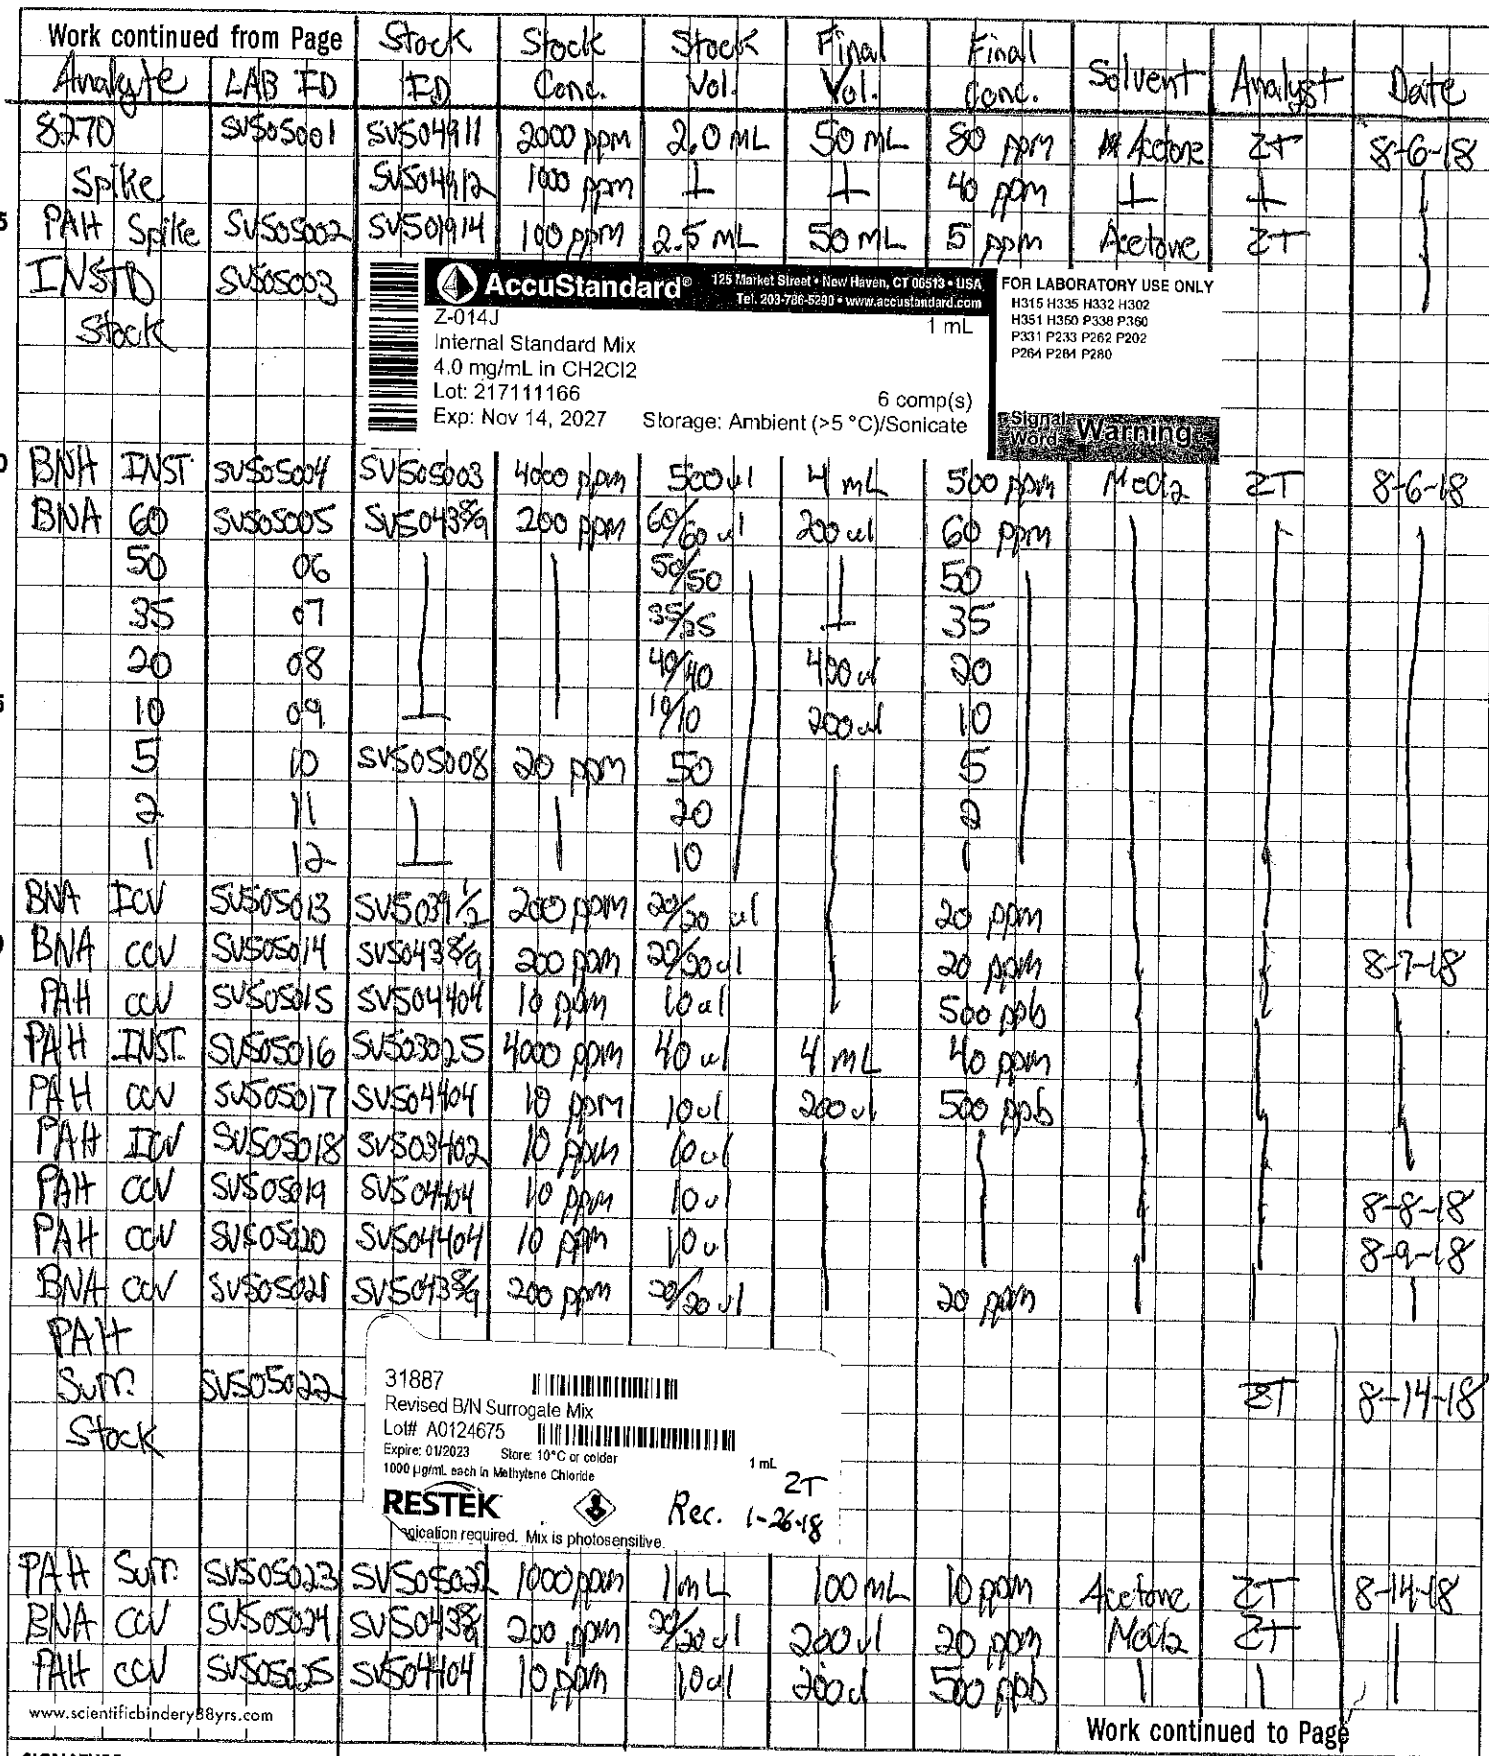 Work continued from Page Stock Stock Stock Final Final
Analyte LAB ID ID Conc. Vol. Vol. Conc. Solvent Analyst Date
8270 SVS05001 SVS04911 2000 ppm 2.0 mL 50 mL 80 ppm Acetone ZT 8-6-18
Spike SVS04912 1000 ppm 40 ppm
5 PAH Spike SVS05002 SVS01914 100 ppm 2.5 mL 50 mL 5 ppm Acetone ZT
INSTD SVS05003
Stock
AccuStandard® 125 Market Street • New Haven, CT 06513 • USA
Tel. 203-786-5290 • www.accustandard.com
Z-014J 1 mL
Internal Standard Mix
4.0 mg/mL in CH2Cl2
Lot: 217111166 6 comp(s)
Exp: Nov 14, 2027 Storage: Ambient (>5 °C)/Sonicate
FOR LABORATORY USE ONLY
H315 H335 H332 H302
H351 H350 P338 P360
P331 P233 P262 P202
P264 P281 P280
Signal Word Warning
0 BNA INST. SVS05004 SVS05003 4000 ppm 500 ul 4 mL 500 ppm MeCl2 ZT 8-6-18
BNA 60 SVS05005 SVS0438/9 200 ppm 60/60 ul 200 ul 60 ppm
50 06 50/50 50
35 07 35/35 35
20 08 40/40 400 ul 20
5 10 09 10/10 200 ul 10
5 10 SVS05008 20 ppm 50 5
2 11 20 2
1 12 10 1
BNA ICV SVS05013 SVS0391/2 200 ppm 20/20 ul 20 ppm
0 BNA CCV SVS05014 SVS0438/9 200 ppm 20/20 ul 20 ppm 8-7-18
PAH CCV SVS05015 SVS04404 10 ppm 10 ul 500 ppb
PAH INST. SVS05016 SVS03025 4000 ppm 40 ul 4 mL 40 ppm
PAH CCV SVS05017 SVS04404 10 ppm 10 ul 200 ul 500 ppb
PAH ICV SVS05018 SVS03402 10 ppm 10 ul
PAH CCV SVS05019 SVS04404 10 ppm 10 ul 8-8-18
PAH CCV SVS05020 SVS04404 10 ppm 10 ul 8-9-18
BNA CCV SVS05021 SVS0438/9 200 ppm 20/20 ul 20 ppm
PAH
Surr. SVS05022 ZT 8-14-18
Stock
31887
Revised B/N Surrogate Mix
Lot# A0124675
Expire: 01/2023 Store: 10°C or colder
1000 µg/mL each in Methylene Chloride 1 mL
RESTEK Rec. 1-26-18 ZT
Sonication required. Mix is photosensitive.
PAH Surr. SVS05023 SVS05022 1000 ppm 1 mL 100 mL 10 ppm Acetone ZT 8-14-18
BNA CCV SVS05024 SVS0438/9 200 ppm 20/20 ul 200 ul 20 ppm MeCl2 ZT
PAH CCV SVS05025 SVS04404 10 ppm 10 ul 200 ul 500 ppb
www.scientificbindery88yrs.com
Work continued to Page